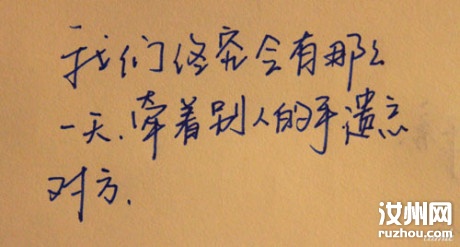 我们终究会有那么
一天.牵着别人的手遗忘
对方.
汝州网
ruzhou.com